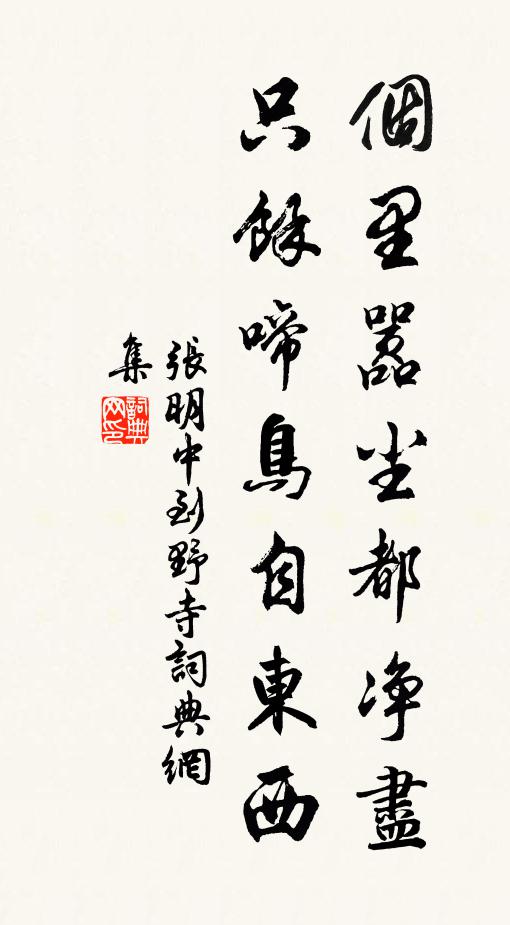 個里嚣尘都净盡
只餘啼鳥自東西
張明中到野寺詞典網
集
詞典網印